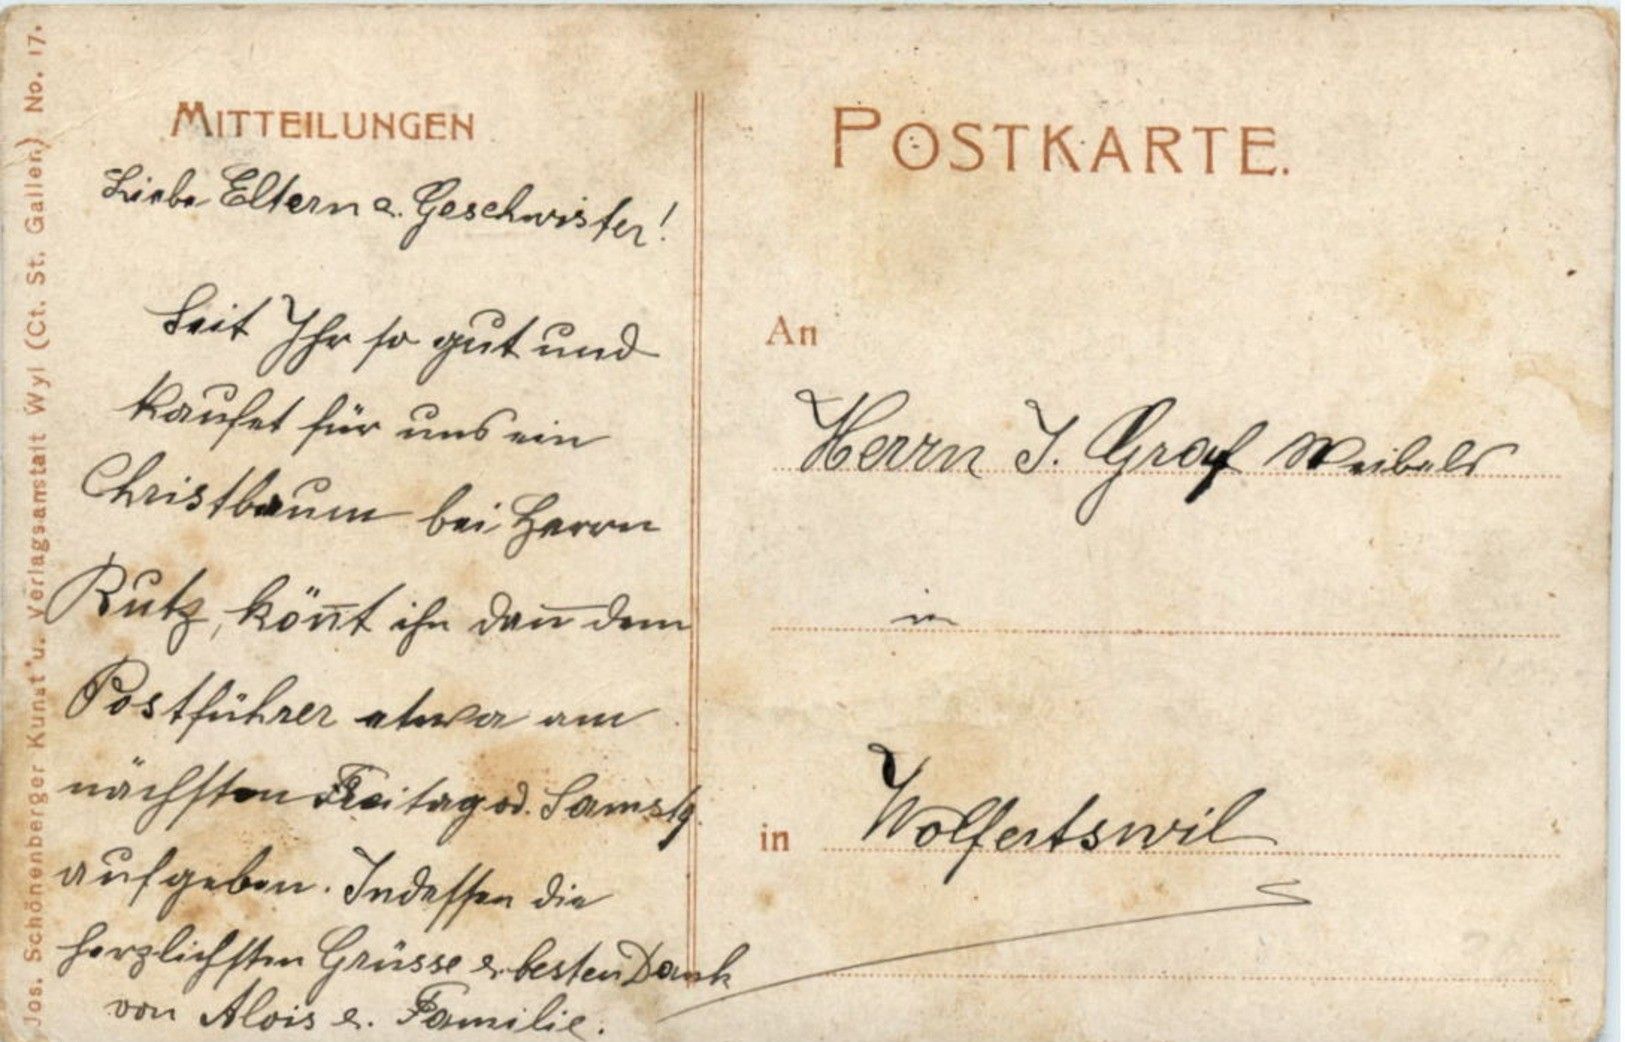 Jos. Schönenberger Kunst u. Verlagsanstalt Wyl (Ct. St. Gallen) No. 17.
MITTEILUNGEN
Liebe Eltern &. Geschwister!
Seit Ihr so gut und
kaufet für uns ein
Christbaum bei Herrn
Rutz, kön̅t ihn dan̅ dem
Postführer etwa am
nächsten Freitag od. Samstg.
aufgeben. Indessen die
herzlichsten Grüsse & besten Dank
von Alois &. Familie.
POSTKARTE.
An
Herrn J. Graf Weibels
in
in Wolfertswil